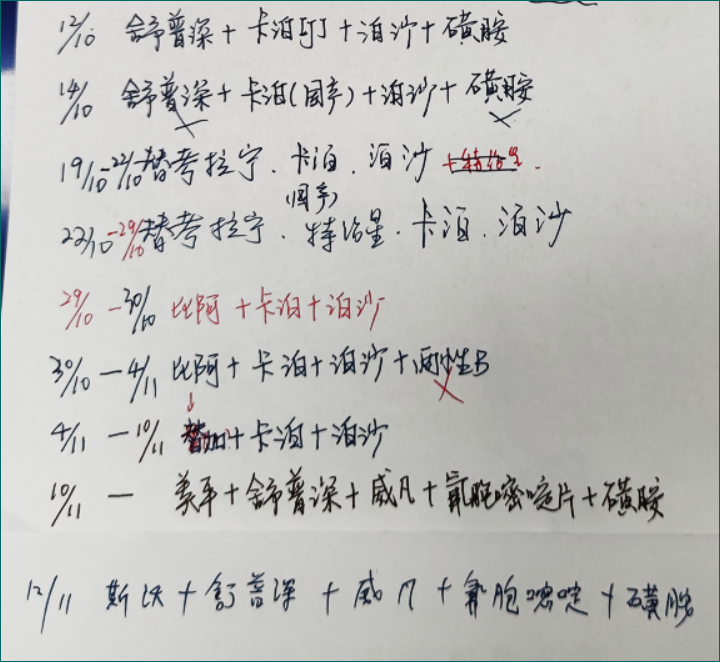 12/10 舒普深+卡泊[]+泊沙+磺胺
14/10 舒普深+卡泊(国产)+泊沙+磺胺
19/10-22/10替考拉宁.卡泊.泊沙+特治星.
(国产)
22/10-29/10替考拉宁.特治星.卡泊.泊沙
29/10-30/10 比阿+卡泊+泊沙
30/10-4/11 比阿+卡泊+泊沙+两性B
4/11-10/11 替加+卡泊+泊沙
10/11- 美平+舒普深+威凡+氟胞嘧啶片+磺胺
12/11 斯沃+舒普深+威凡+氟胞嘧啶+磺胺